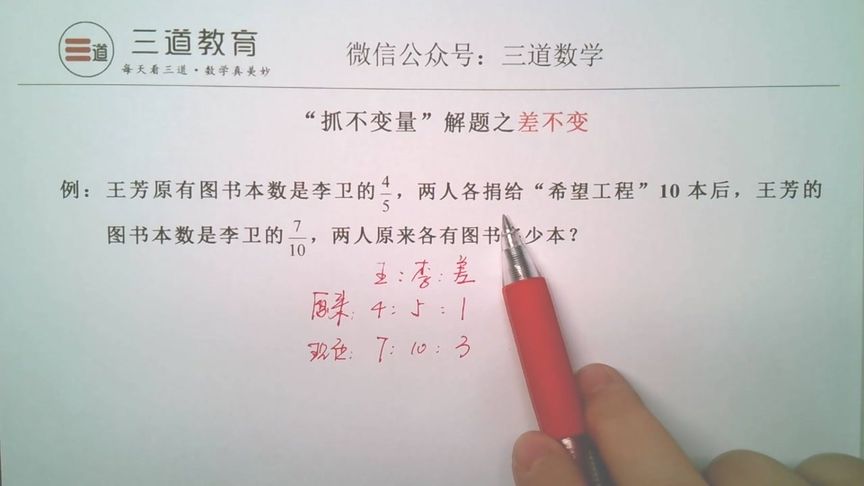 三道教育
每天看三道·数学真美妙
微信公众号：三道数学
“抓不变量”解题之差不变
例：王芳原有图书本数是李卫的4/5，两人各捐给“希望工程”10 本后，王芳的
图书本数是李卫的7/10，两人原来各有图书 少本？
王：李：差
原来：4：5：1
现在：7：10：3